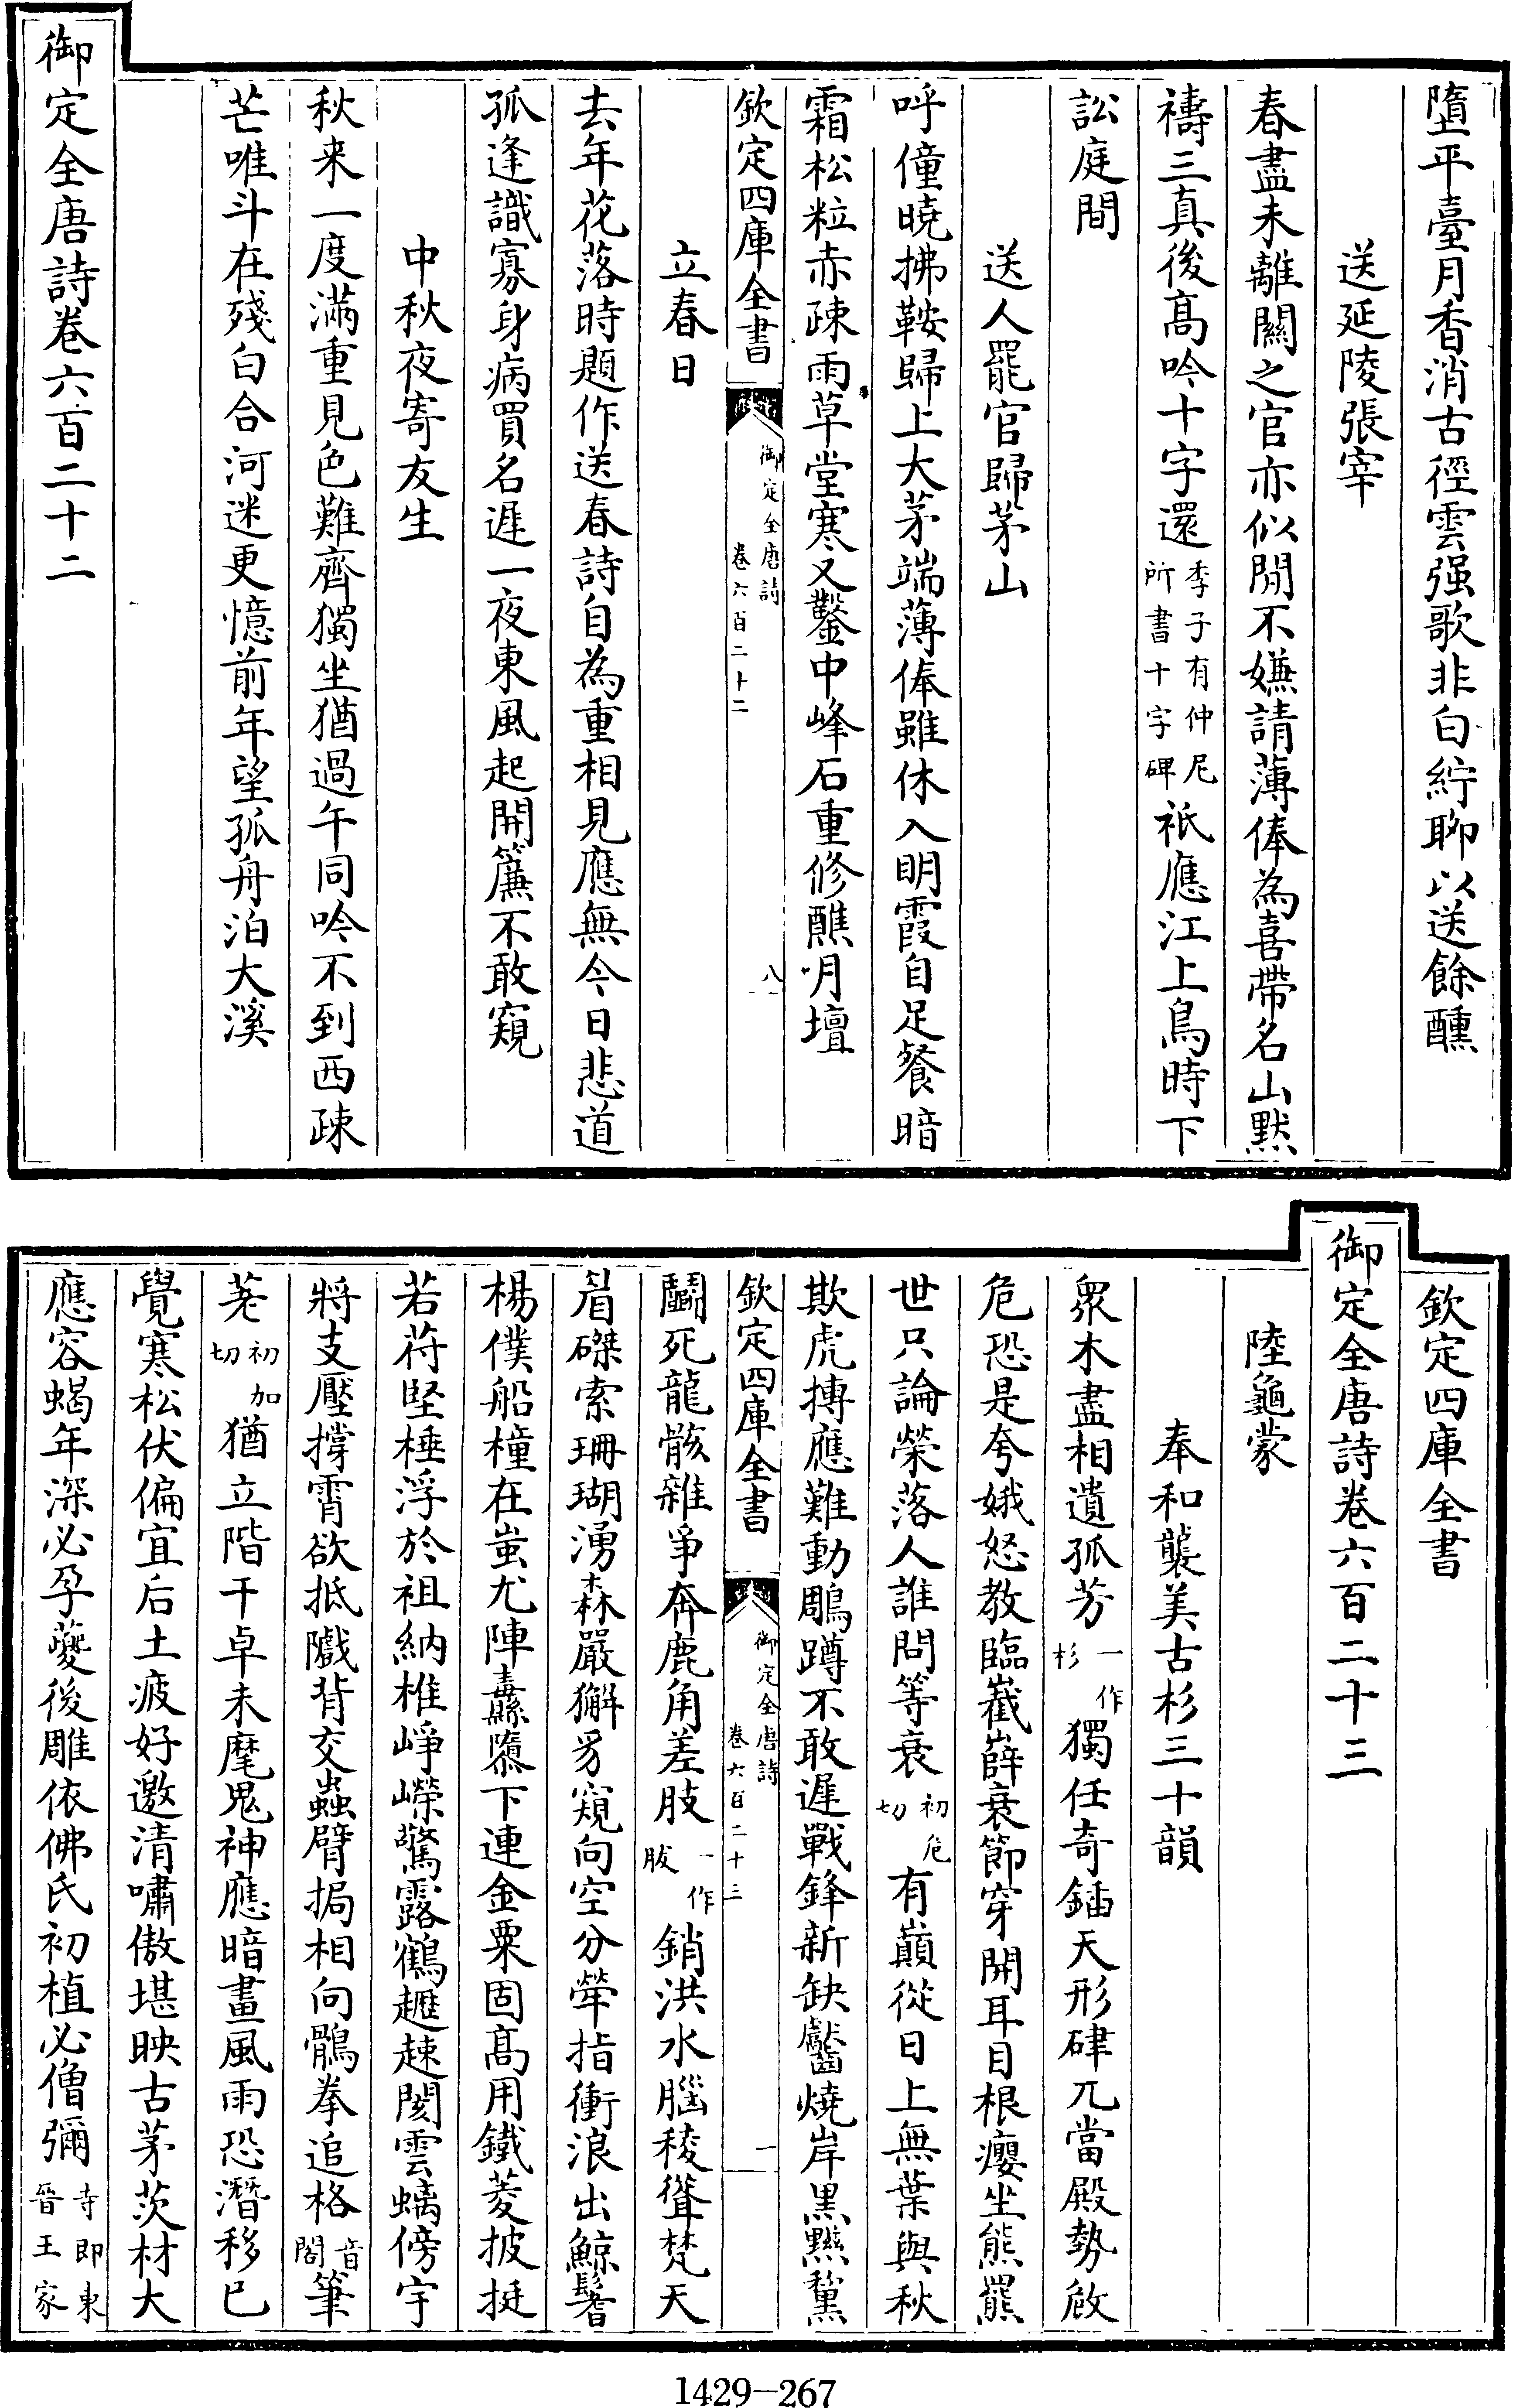 墮平臺月香消古徑雲强歌非白紵聊以送餘醺
送延陵張宰
春盡未離關之官亦似閒不嫌請薄俸為喜帶名山黙
禱三真後髙吟十字還季子有仲尼所書十字碑祇應江上鳥時下
訟庭間
送人罷官歸茅山
呼僮曉拂鞍歸上大茅端薄俸雖休入明霞自足餐暗
霜松粒赤疎雨草堂寒又鑿中峰石重修醮月壇
欽定四庫全書
御定全唐詩
卷六百二十二
八
立春日
去年花落時題作送春詩自為重相見應無今日悲道
孤逢識寡身病買名遲一夜東風起開簾不敢窺
中秋夜寄友生
秋来一度滿重見色難齊獨坐猶過午同吟不到西疎
芒唯斗在殘白合河迷更憶前年望孤舟泊大溪
御定全唐詩卷六百二十二
欽定四庫全書
御定全唐詩卷六百二十三
陸龜蒙
奉和襲美古杉三十韻
衆木盡相遺孤芳一作杉獨任奇鍤天形硉兀當殿勢㱃
危恐是夸娥怒教臨嶻嶭衰節穿開耳目根癭坐熊羆
世只論榮落人誰問等衰初危切有巔從日上無葉與秋
欺虎搏應難動鵰蹲不敢遲戰鋒新缺齾燒岸黒黶黧
欽定四庫全書
御定全唐詩
卷六百二十三
一
鬭死龍骸雜爭奔鹿角差肢一作胈銷洪水腦稜聳梵天
眉磔索珊瑚湧森嚴獬豸窺向空分犖指衝浪出鯨鬐
楊僕船橦在蚩尤陣纛隳下連金粟固髙用鐵菱披挺
若苻堅棰浮於祖納椎崢嶸驚露鶴趰趚閡雲螭傍宇
將支壓撐霄欲抵隵背交蟲臂挶相向鶻拳追格音閣筆
荖初加切猶立階干卓未麾鬼神應暗畫風雨恐潛移已
覺寒松伏偏宜后土疲好邀清嘯傲堪映古茅茨材大
應容蝎年深必孕夔後雕依佛氏初植必僧彌寺即東晉王家
1429-267